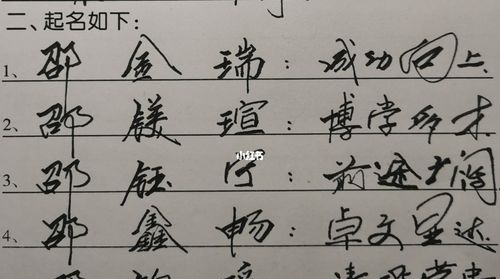 二、起名如下:
1、邵金瑞:成功向上
2、邵镁瑄:博学多才
小红书
3、邵钰 :前途广阔
4、邵鑫畅:卓文 达